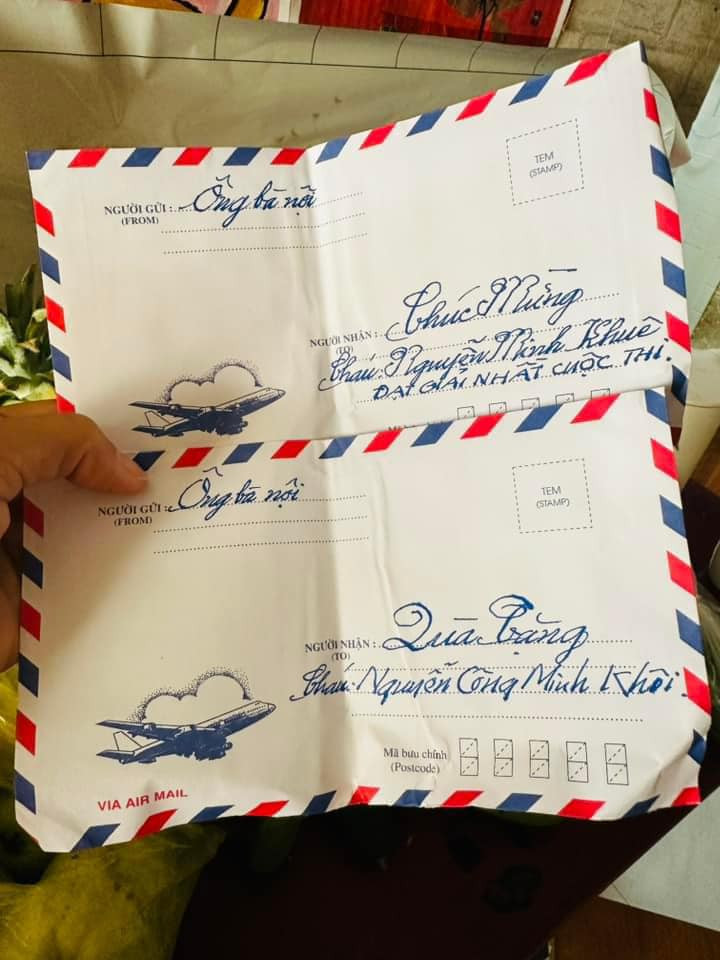 NGƯỜI GỬI : Ông bà nội
(FROM)
TEM
(STAMP)
NGƯỜI NHẬN : Chúc Mừng
(TO)
Cháu: Nguyễn Minh Khuê
ĐẠT GIẢI NHẤT CUỘC THI.
NGƯỜI GỬI : Ông bà nội
(FROM)
TEM
(STAMP)
NGƯỜI NHẬN : Quà tặng
(TO)
Cháu: Nguyễn Công Minh Khôi.
Mã bưu chính
(Postcode)
VIA AIR MAIL